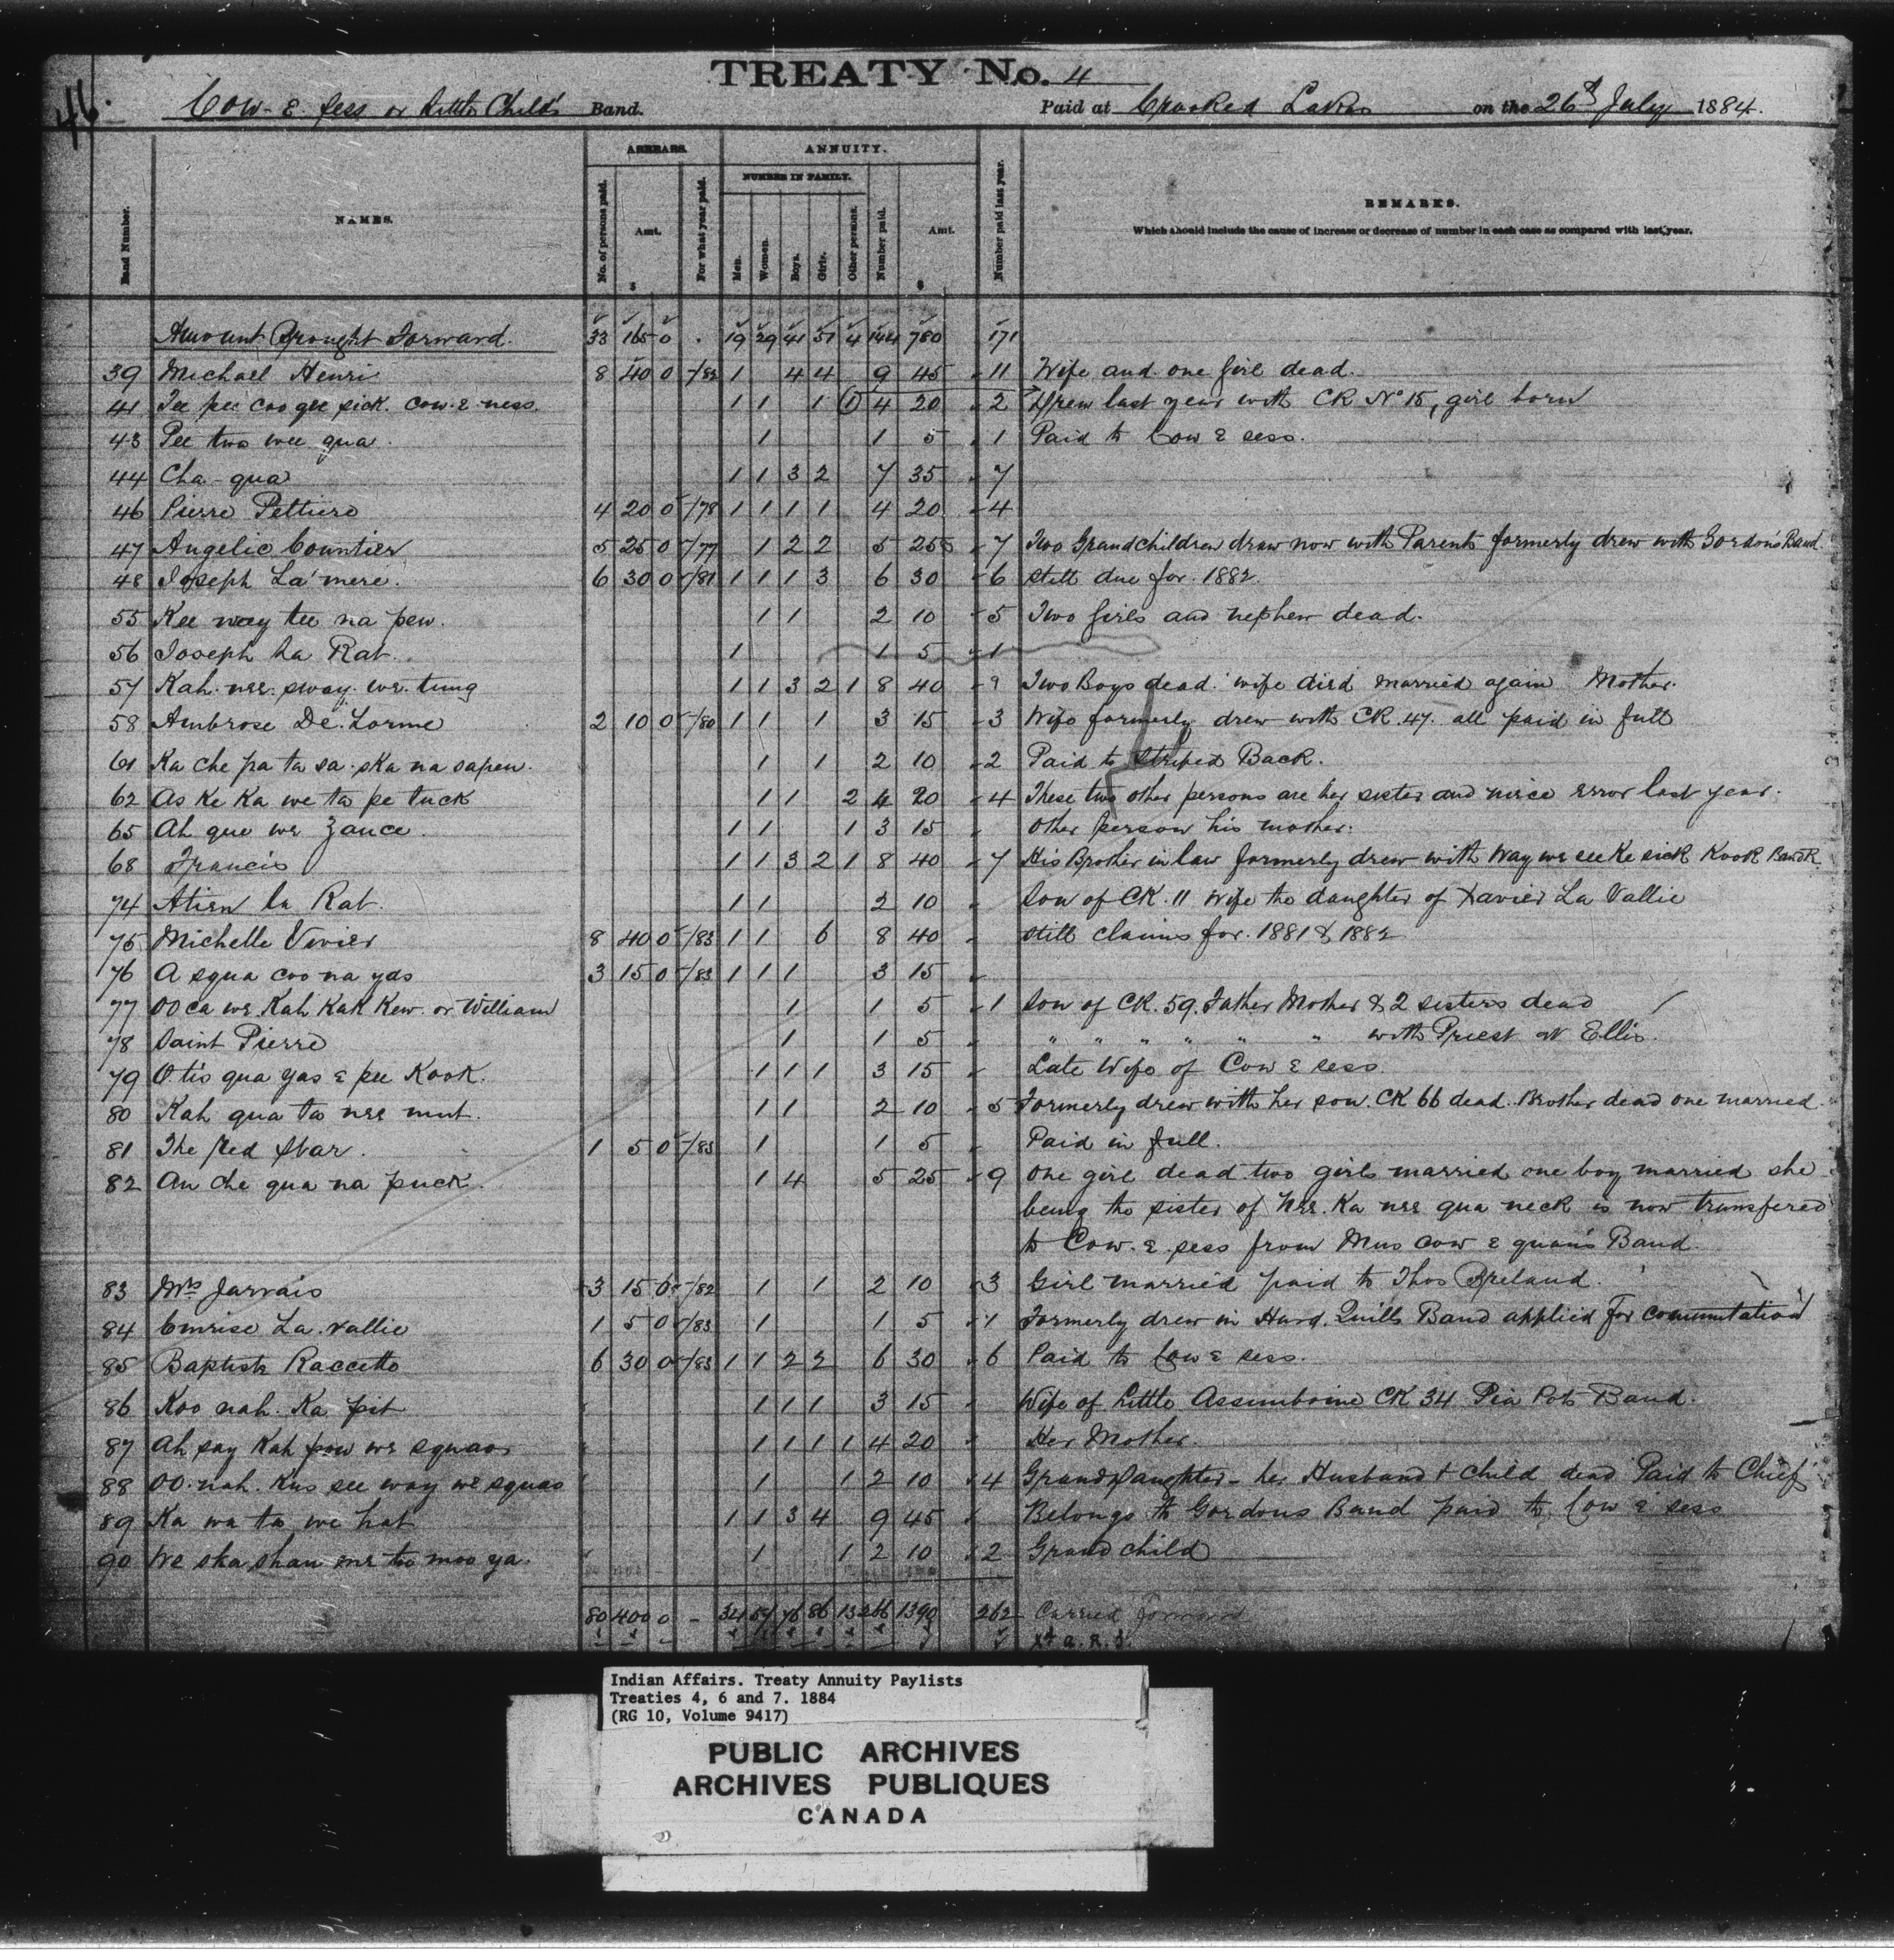 46.
TREATY No. 4
Cow. E. sess or Little Child's Band. Paid at Crooked Lakes on the 26th July 1884.
Band Number. NAMES. ARREARS. No. of persons paid. Amt. $ For what year paid. ANNUITY. NUMBER IN FAMILY. Men. Women. Boys. Girls. Other persons. Number paid. Amt. $ Number paid last year. REMARKS.
Which should include the cause of increase or decrease of number in each case as compared with last year.
Amount Brought Forward. 33 165 0 . 19 29 41 51 4 144 780 171
39 Michael Henri 8 40 0 -/83 1 4 4 9 45 11 Wife and one girl dead.
41 Tee pee coo gee sick. cow. E. ness. 1 1 1 1 4 20 2 Drew last year with CK No 15, girl born
43 Pee two wee qua. 1 1 5 1 Paid to Cow E sess.
44 Cha-qua 1 1 3 2 7 35 7
46 Pierre Pettiere 4 20 0 -/78 1 1 1 1 4 20 4
47 Angelic Countier 5 25 0 -/77 1 2 2 5 25 7 Two Grandchildren draw now with Parents formerly drew with Gordon's Band.
48 Joseph La'mere. 6 30 0 -/81 1 1 1 3 6 30 6 still due for 1882.
55 Kee way tee na pew. 1 1 2 10 5 Two girls and nephew dead.
56 Joseph La Rat. 1 1 5 1
57 Kah. nee. sway. we. tung 1 1 3 2 1 8 40 9 Two Boys dead. wife died married again Mother.
58 Ambrose De. Lorme 2 10 0 -/80 1 1 1 3 15 3 Wife formerly drew with CK. 47. all paid in full
61 Ka che pa ta sa. ska na sapew. 1 1 2 10 2 Paid to Striped Back.
62 As Ke Ka we ta pe tuck 1 1 2 4 20 4 These two other persons are her sister and niece error last year.
65 Ah que we zance. 1 1 1 3 15 Other person his mother.
68 Francis 1 1 3 2 1 8 40 7 His Brother in law formerly drew with Way we see Ke sick Kook Band
74 Atien la Rat. 1 1 2 10 Son of CK. 11 Wife the daughter of Xavier La Vallie
75 Michelle Vivier 8 40 0 -/83 1 1 6 8 40 still claims for. 1881 & 1882
76 A squa coo na yas 3 15 0 -/83 1 1 1 3 15
77 OO ca we Kah Kak Kew. or William 1 1 5 1 Son of CK. 59. Father Mother & 2 sisters dead
78 Saint Pierre 1 1 5 " " " " " " with Priest at Ellis.
79 O. tis qua yas E pee Kook. 1 1 1 3 15 Late Wife of Cow E sess
80 Kah qua ta nee mut. 1 1 2 10 5 Formerly drew with her son. CK 66 dead. Brother dead one married.
81 The Red Star. 1 5 0 -/83 1 1 5 Paid in full.
82 An che qua na puck. 1 4 5 25 9 One girl dead two girls married one boy married she
being the sister of Nee. Ka nee qua neck is now transfered
to Cow. E. sess from Mus cow E quan's Band.
83 Mrs Jarvais 3 15 0 -/82 1 1 2 10 3 Girl married paid to Thos Breland.
84 Emrise La. vallie 1 5 0 -/83 1 1 5 1 Formerly drew in Hard. Quills Band applied for commutation
85 Baptiste Raccette 6 30 0 -/83 1 1 2 2 6 30 6 Paid to Cow E sess.
86 Koo nah. Ka pit 1 1 1 3 15 Wife of Little Assiniboine CK 34 Pia Pots Band.
87 Ah say Kah pow we squaos 1 1 1 1 4 20 Her Mother.
88 OO. nah. Kus see way we squao 1 1 2 10 4 Grand Daughter - her Husband & Child dead Paid to Chief
89 Ka wa ta we hat 1 1 3 4 9 45 Belongs to Gordons Band paid to Cow E sess
90 We ska shan me to moo ya. 1 1 2 10 2 Grand child
80 400 0 - 34 57 76 86 13 266 1390 262 Carried forward
Indian Affairs. Treaty Annuity Paylists
Treaties 4, 6 and 7. 1884
(RG 10, Volume 9417)
PUBLIC ARCHIVES
ARCHIVES PUBLIQUES
CANADA